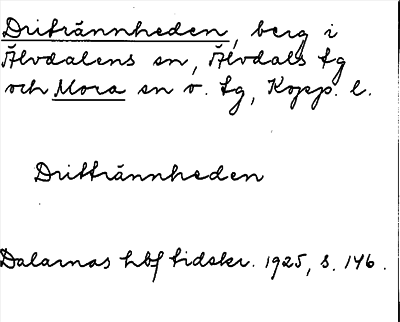 Dritrännheden, berg i
Älvdalens sn, Älvdals tg
och Mora sn o. tg, Kopp. l.
Drittrännheden
Dalarnas hbf tidskr. 1925, s. 146.